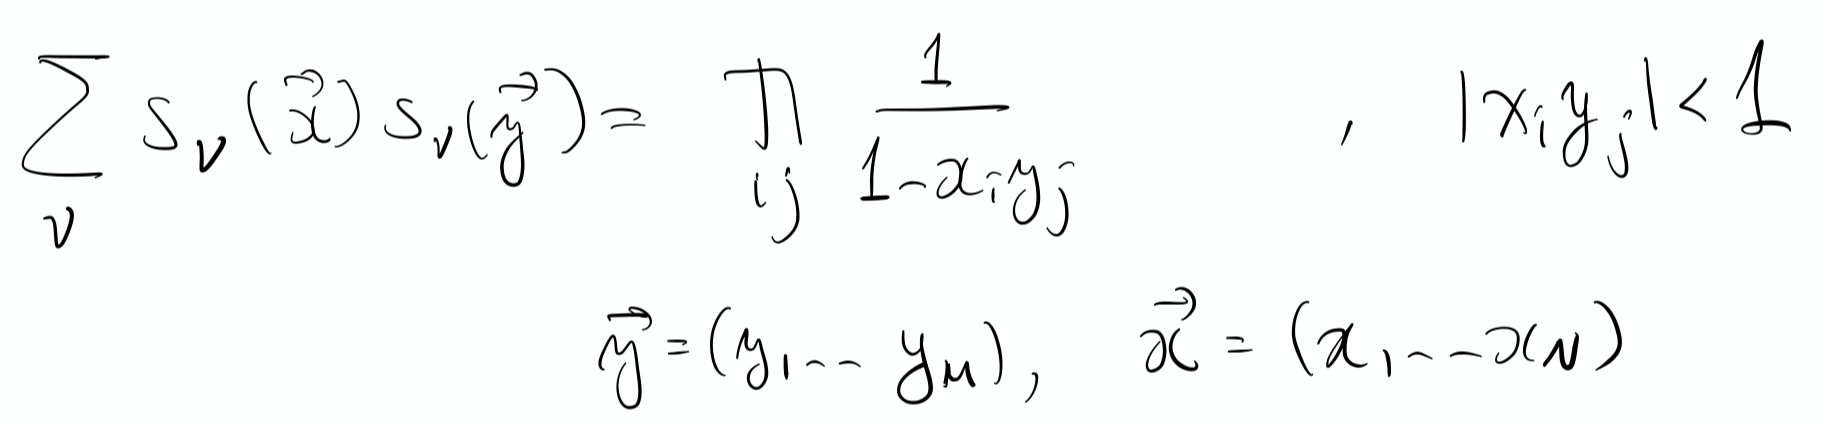 ∑_ν s_ν(x⃗) s_ν(y⃗) = ∏_{ij} 1/(1-x_i y_j) , |x_i y_j| < 1
y⃗ = (y_1 -- y_M), x⃗ = (x_1 -- x_N)